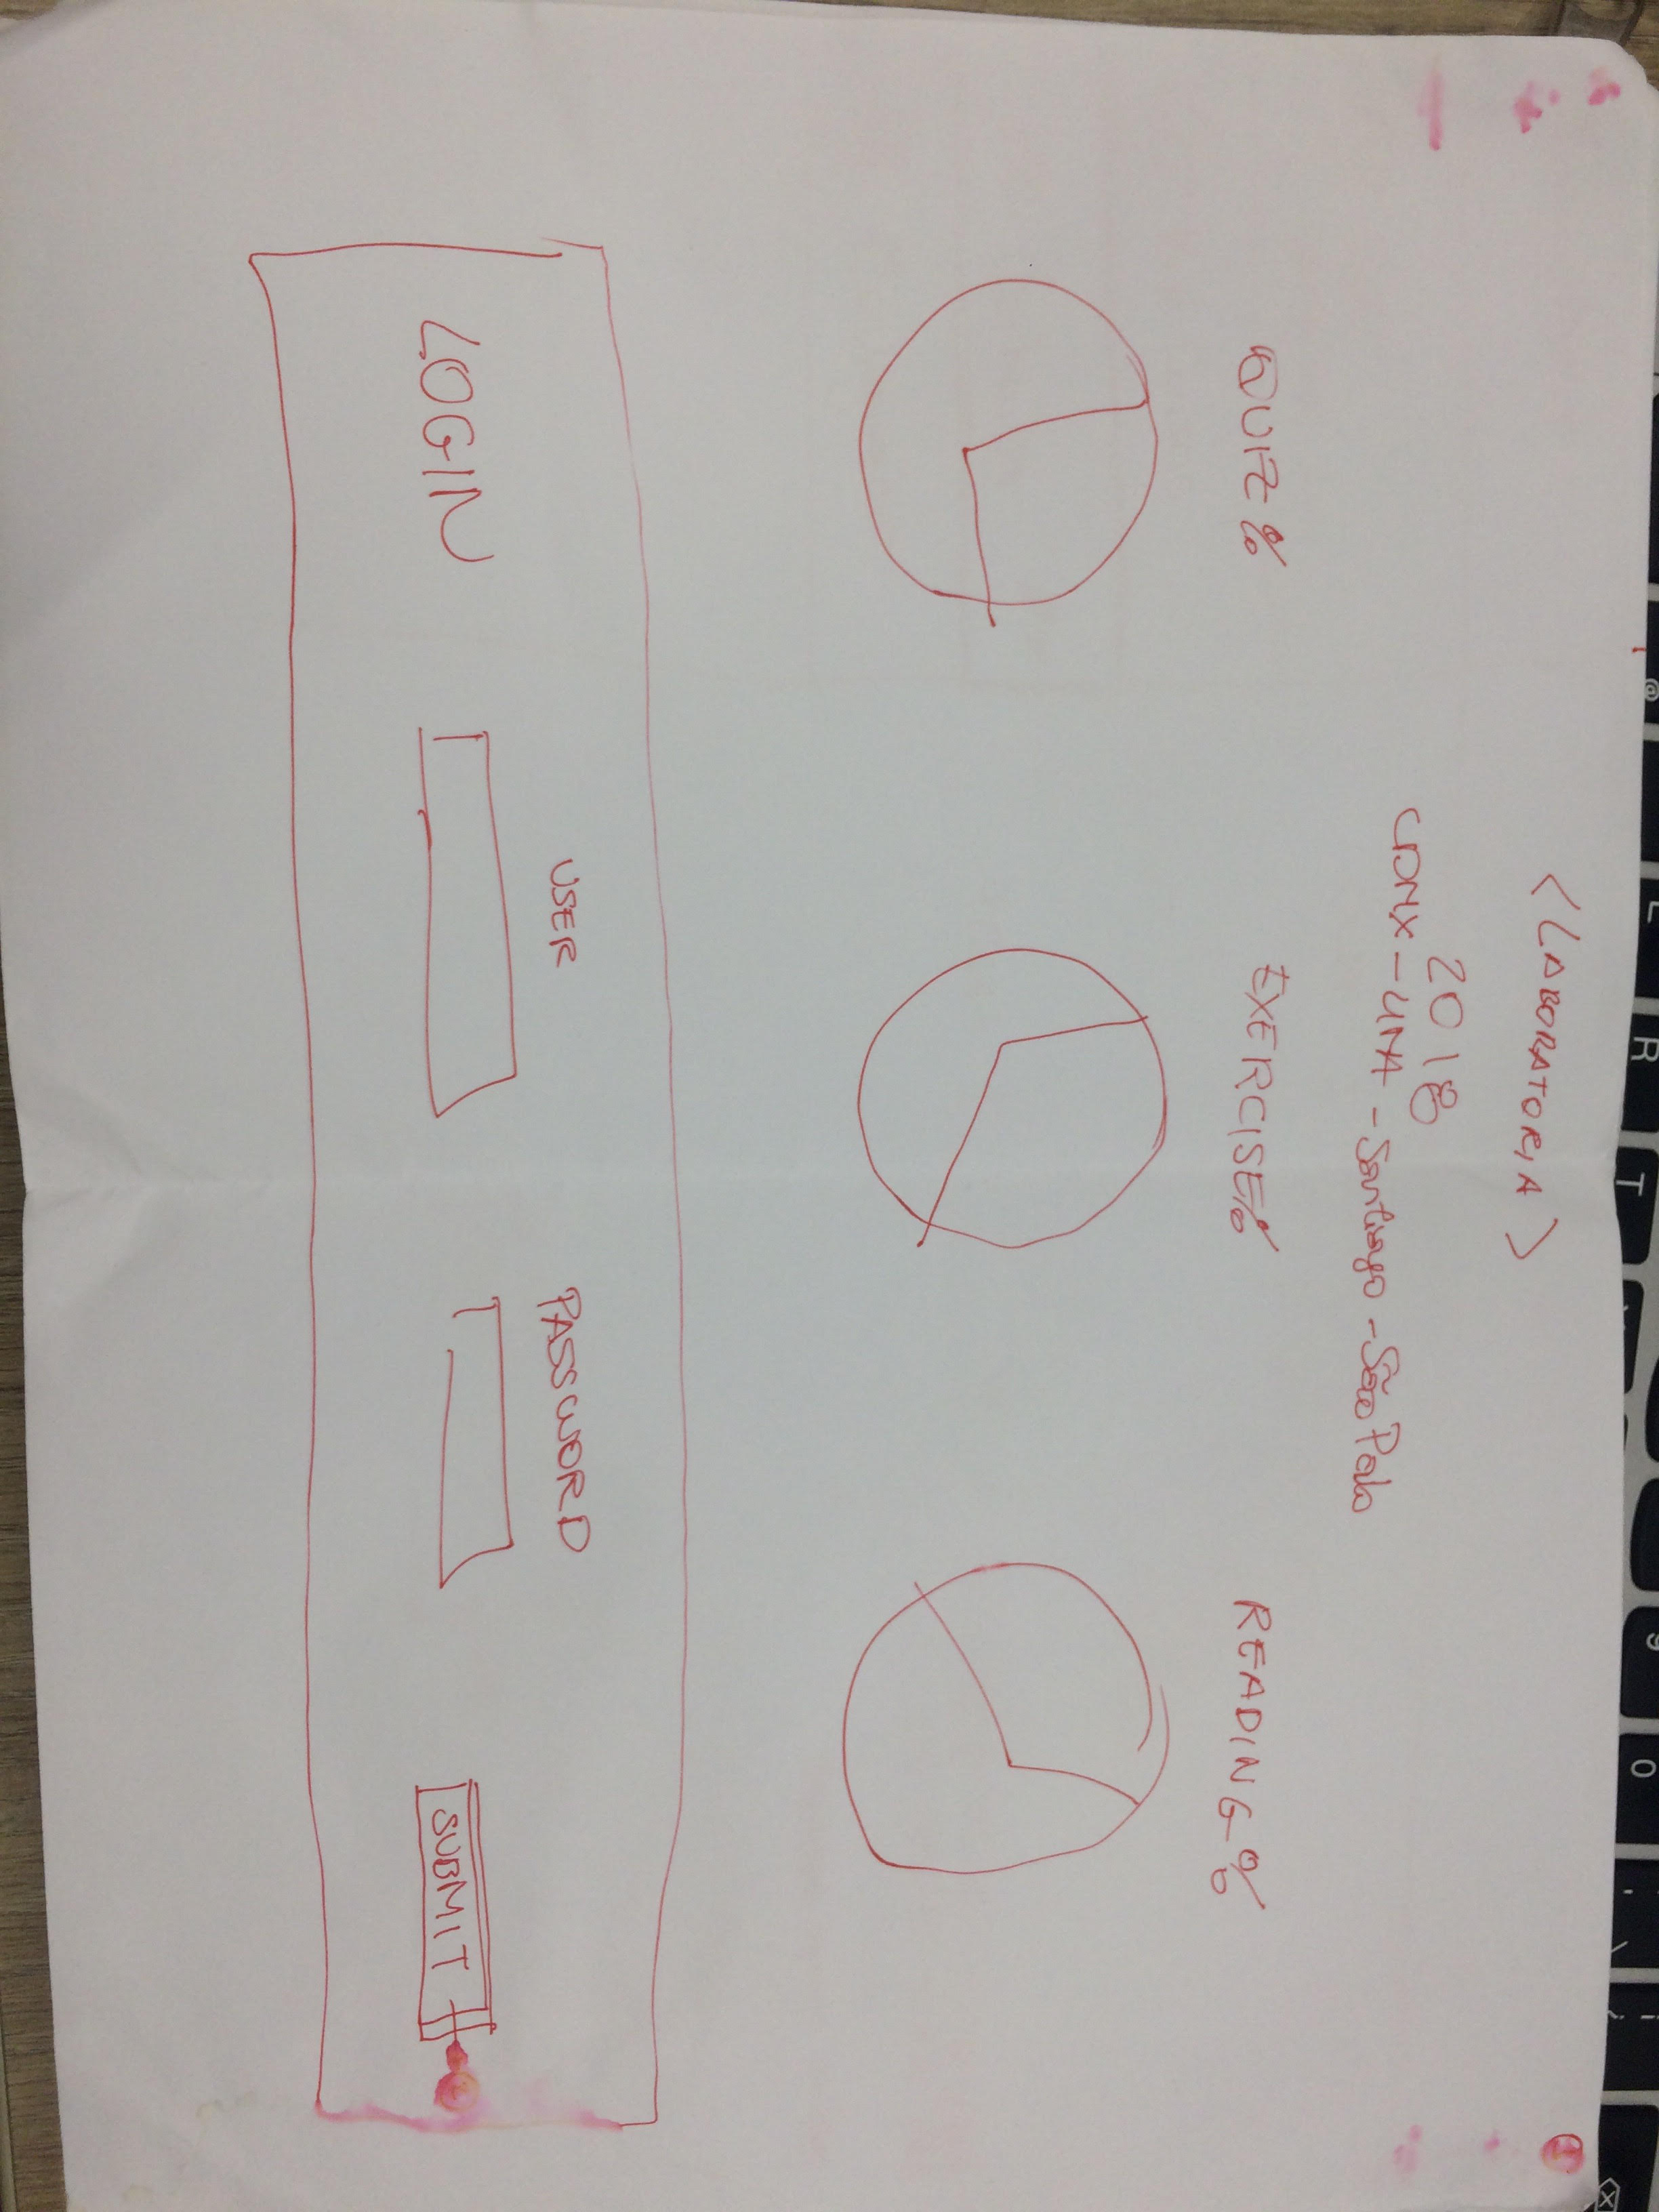 <LABORATORIA>
2018
CDMX - LIMA - Santiago - São Palo
QUIZ % EXERCISE % READING %
USER PASSWORD
LOGIN SUBMIT
@ R T 9 0